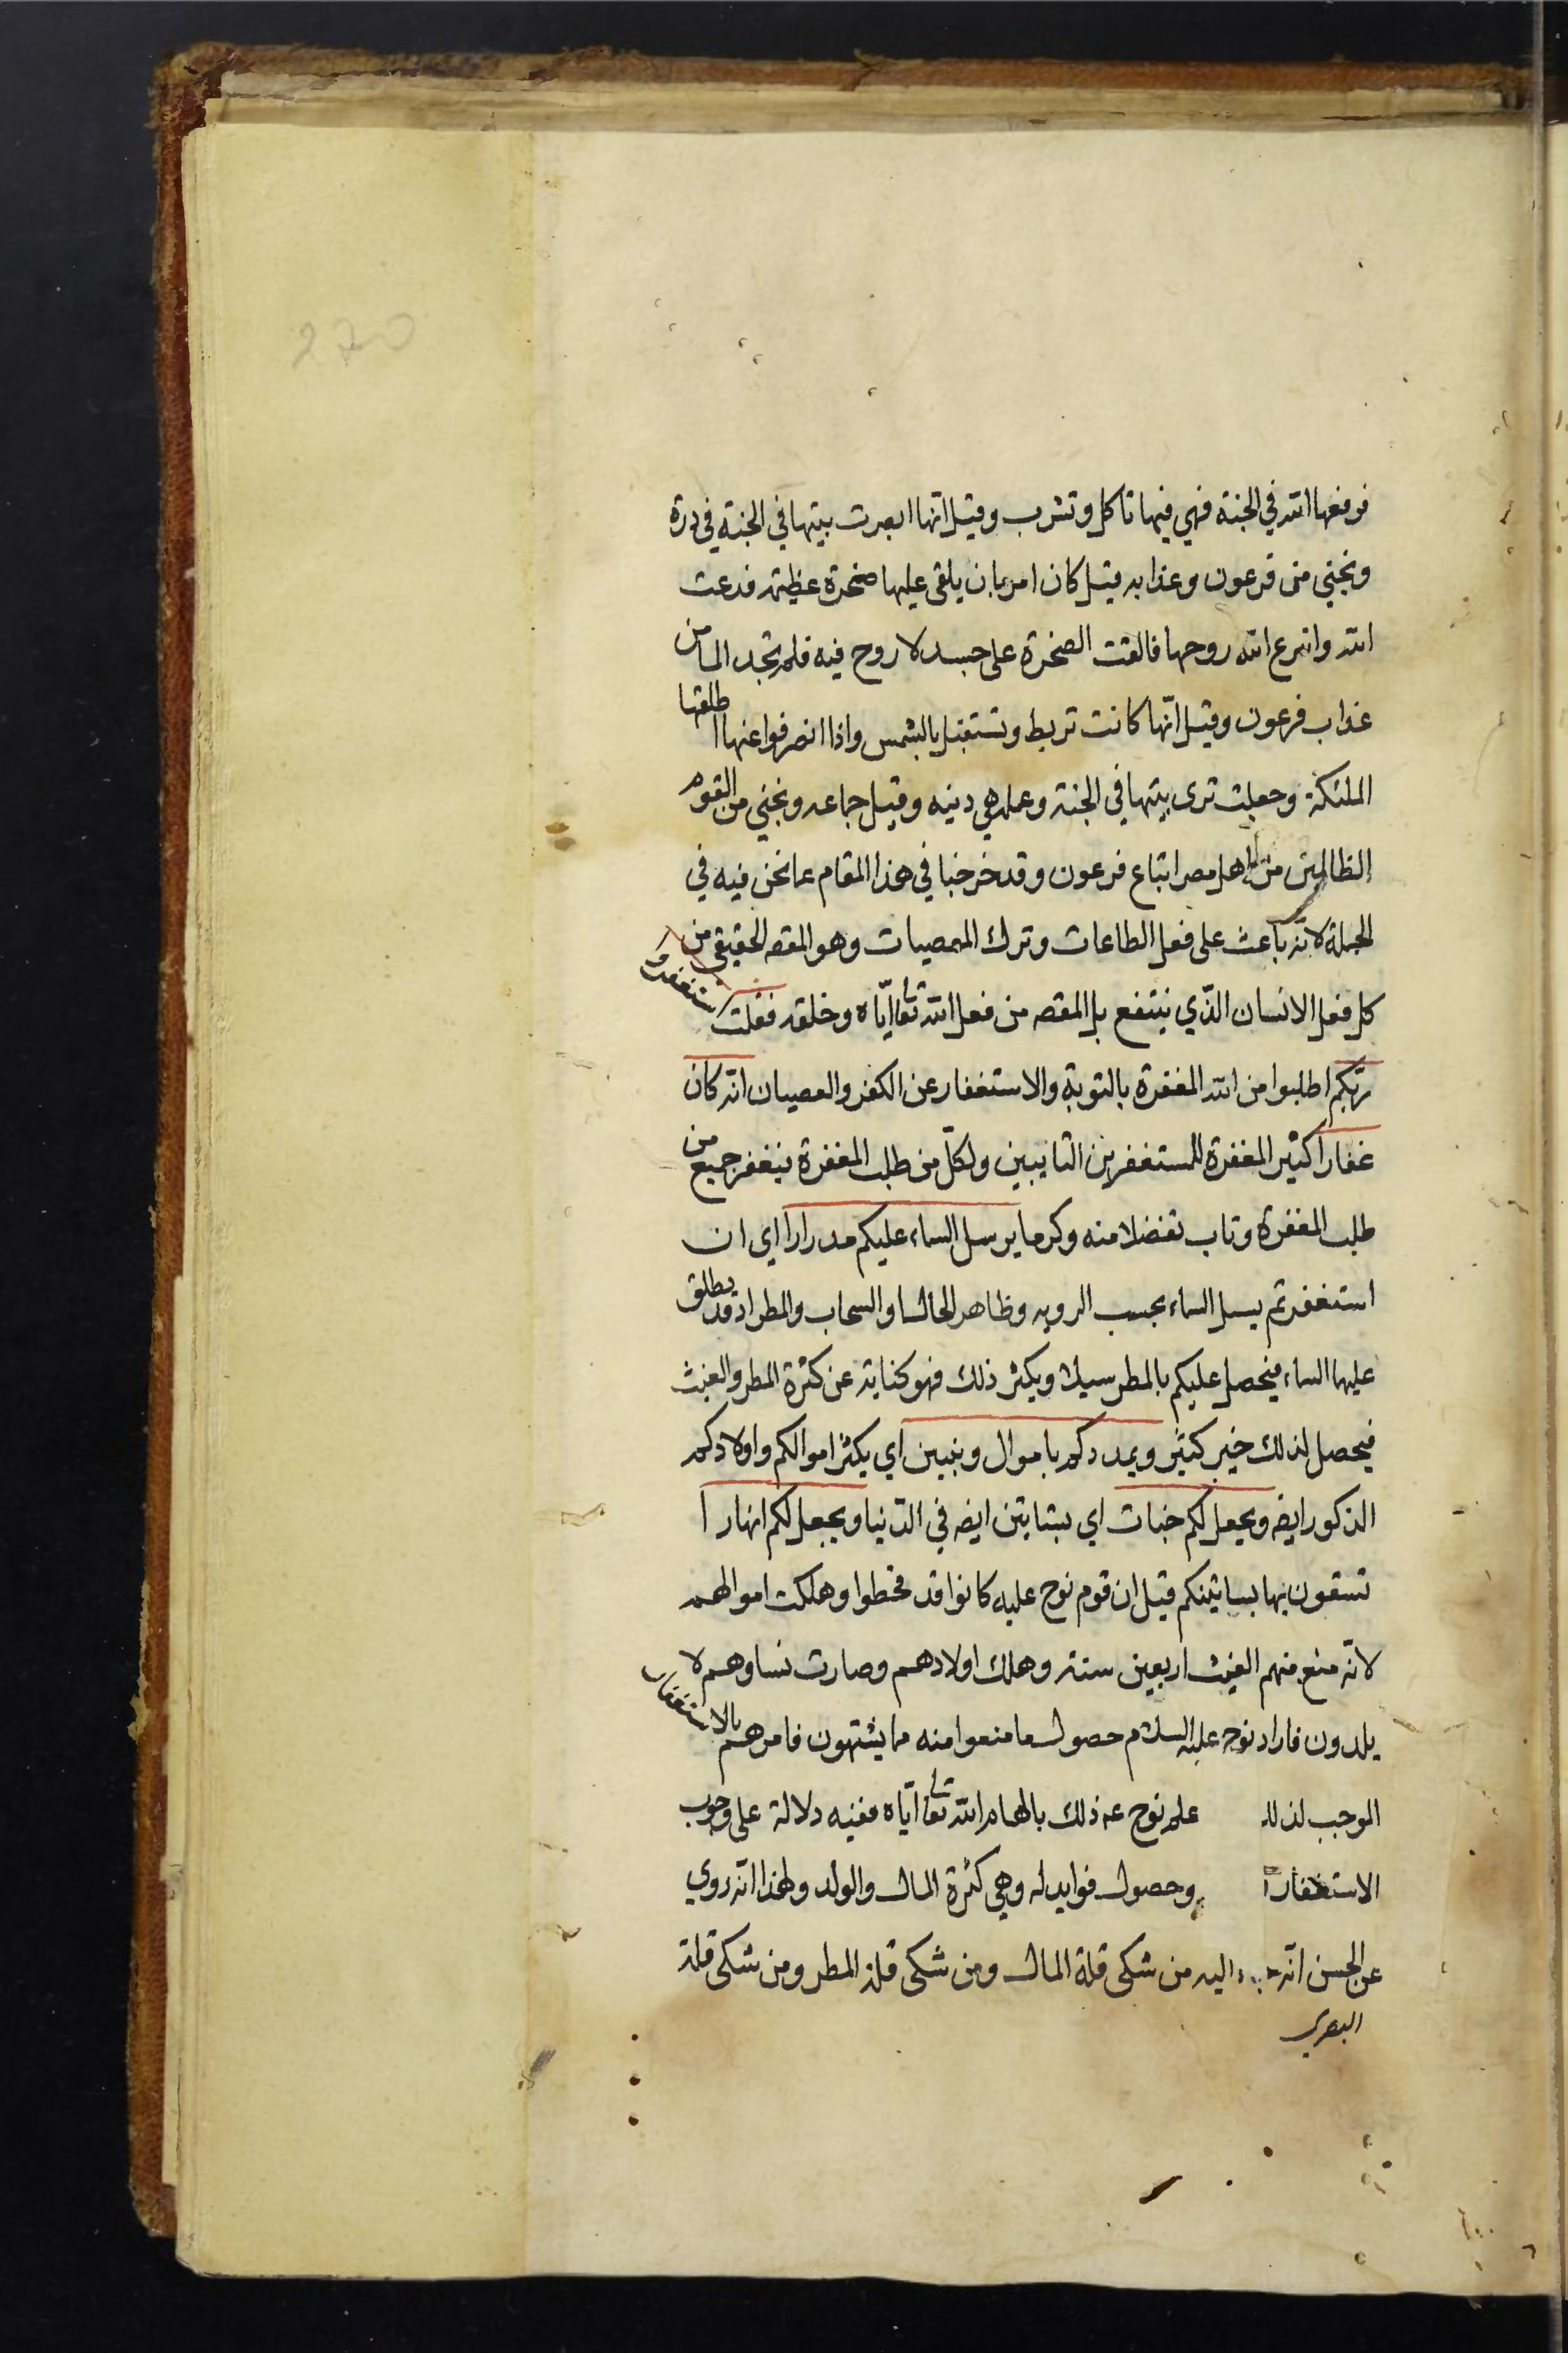 270
فرفعها الله في الجنة فهي فيها تاكل وتشرب وقيل انها ابصرت بيتها في الجنة في درة
ونجني من فرعون وعذابه قيل كان امر بان يلقى عليها صخرة عظيمة فدعت
الله وانتزع الله روحها فالقت الصخرة على جسد لا روح فيه فلم تجد الما من
عذاب فرعون وقيل انّها كانت تربط وتستقبل بالشمس واذا انصرفوا عنها اطلقها
الملئكة وجعلت ترى بيتها في الجنة وعمله هي دينه وقيل جماعه ونجني من القوم
الظالمين من اهل مصر اتباع فرعون وقد خرجنا في هذا المقام عما نحن فيه في
الجملة لانه باعث على فعل الطاعات وترك المعصيات وهو المقصه الحقيقي من
كل فعل الانسان الذّي ينتفع بل المقصه من فعل الله تعالى ايّاه وخلقه فقلت استغفروا
ربّكم اطلبوا من الله المغفرة بالتوبة والاستغفار عن الكفر والعصيان انّه كان
غفارا كثير المغفرة للمستغفرين التايبين ولكلّ من طلب المغفرة فيغفر جميع من
طلب المغفرة وتاب تفضلا منه وكرما يرسل السماء عليكم مدرارا اي ان
استغفرتم يسل السماء بحسب الرويه وظاهر الحال او السحاب والمطر اذ قد يطلق
عليها السماء فيحصل عليكم بالمطر سيلا ويكثر ذلك فهو كناية عن كثرة المطر والغيث
فيحصل لذلك خير كثير ويمددكم باموال وبنين اي يكثر اموالكم واولادكم
الذكور ايضه ويجعل لكم جنات اي بساتين ايضه في الدّنيا ويجعل لكم انهارا
تسقون بها بساتينكم قيل ان قوم نوح عليه كانوا قد قحطوا وهلكت اموالهم
لانّه منع منهم الغيث اربعين سنة وهلك اولادهم وصارت نساوهم لا
يلدون فاراد نوح عليه السلام حصول ما منعوا منه مما يشتهون فامرهم بالاستغفار
الموجب لذلك علم نوح عه ذلك بالهام الله تعالى ايّاه ففيه دلالة على وجوب
الاستغفار وحصول فوايد له وهي كثرة المال والولد ولهذا انّه روي
عن الحسن انّه اليه من شكى قلة المال ومن شكى قلة المطر ومن شكى قلة
البصري